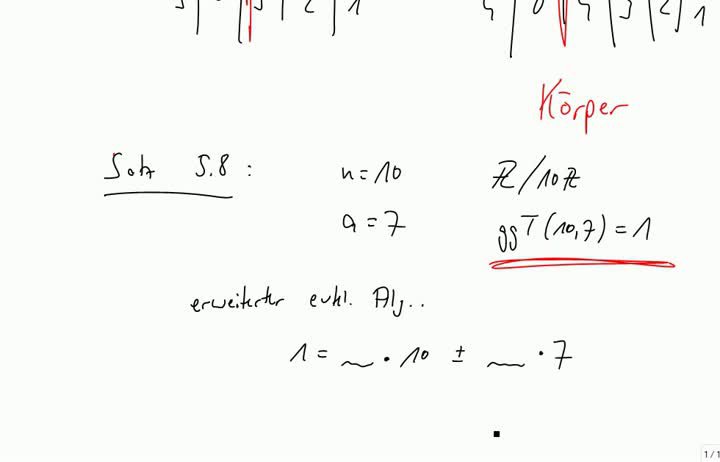 1 4 3 2 1
Körper
Satz 5.8 : n = 10 ℤ/10ℤ
a = 7 ggT(10,7) = 1
erweiterter eukl. Alg..
1 = __ · 10 ± __ · 7
1/1